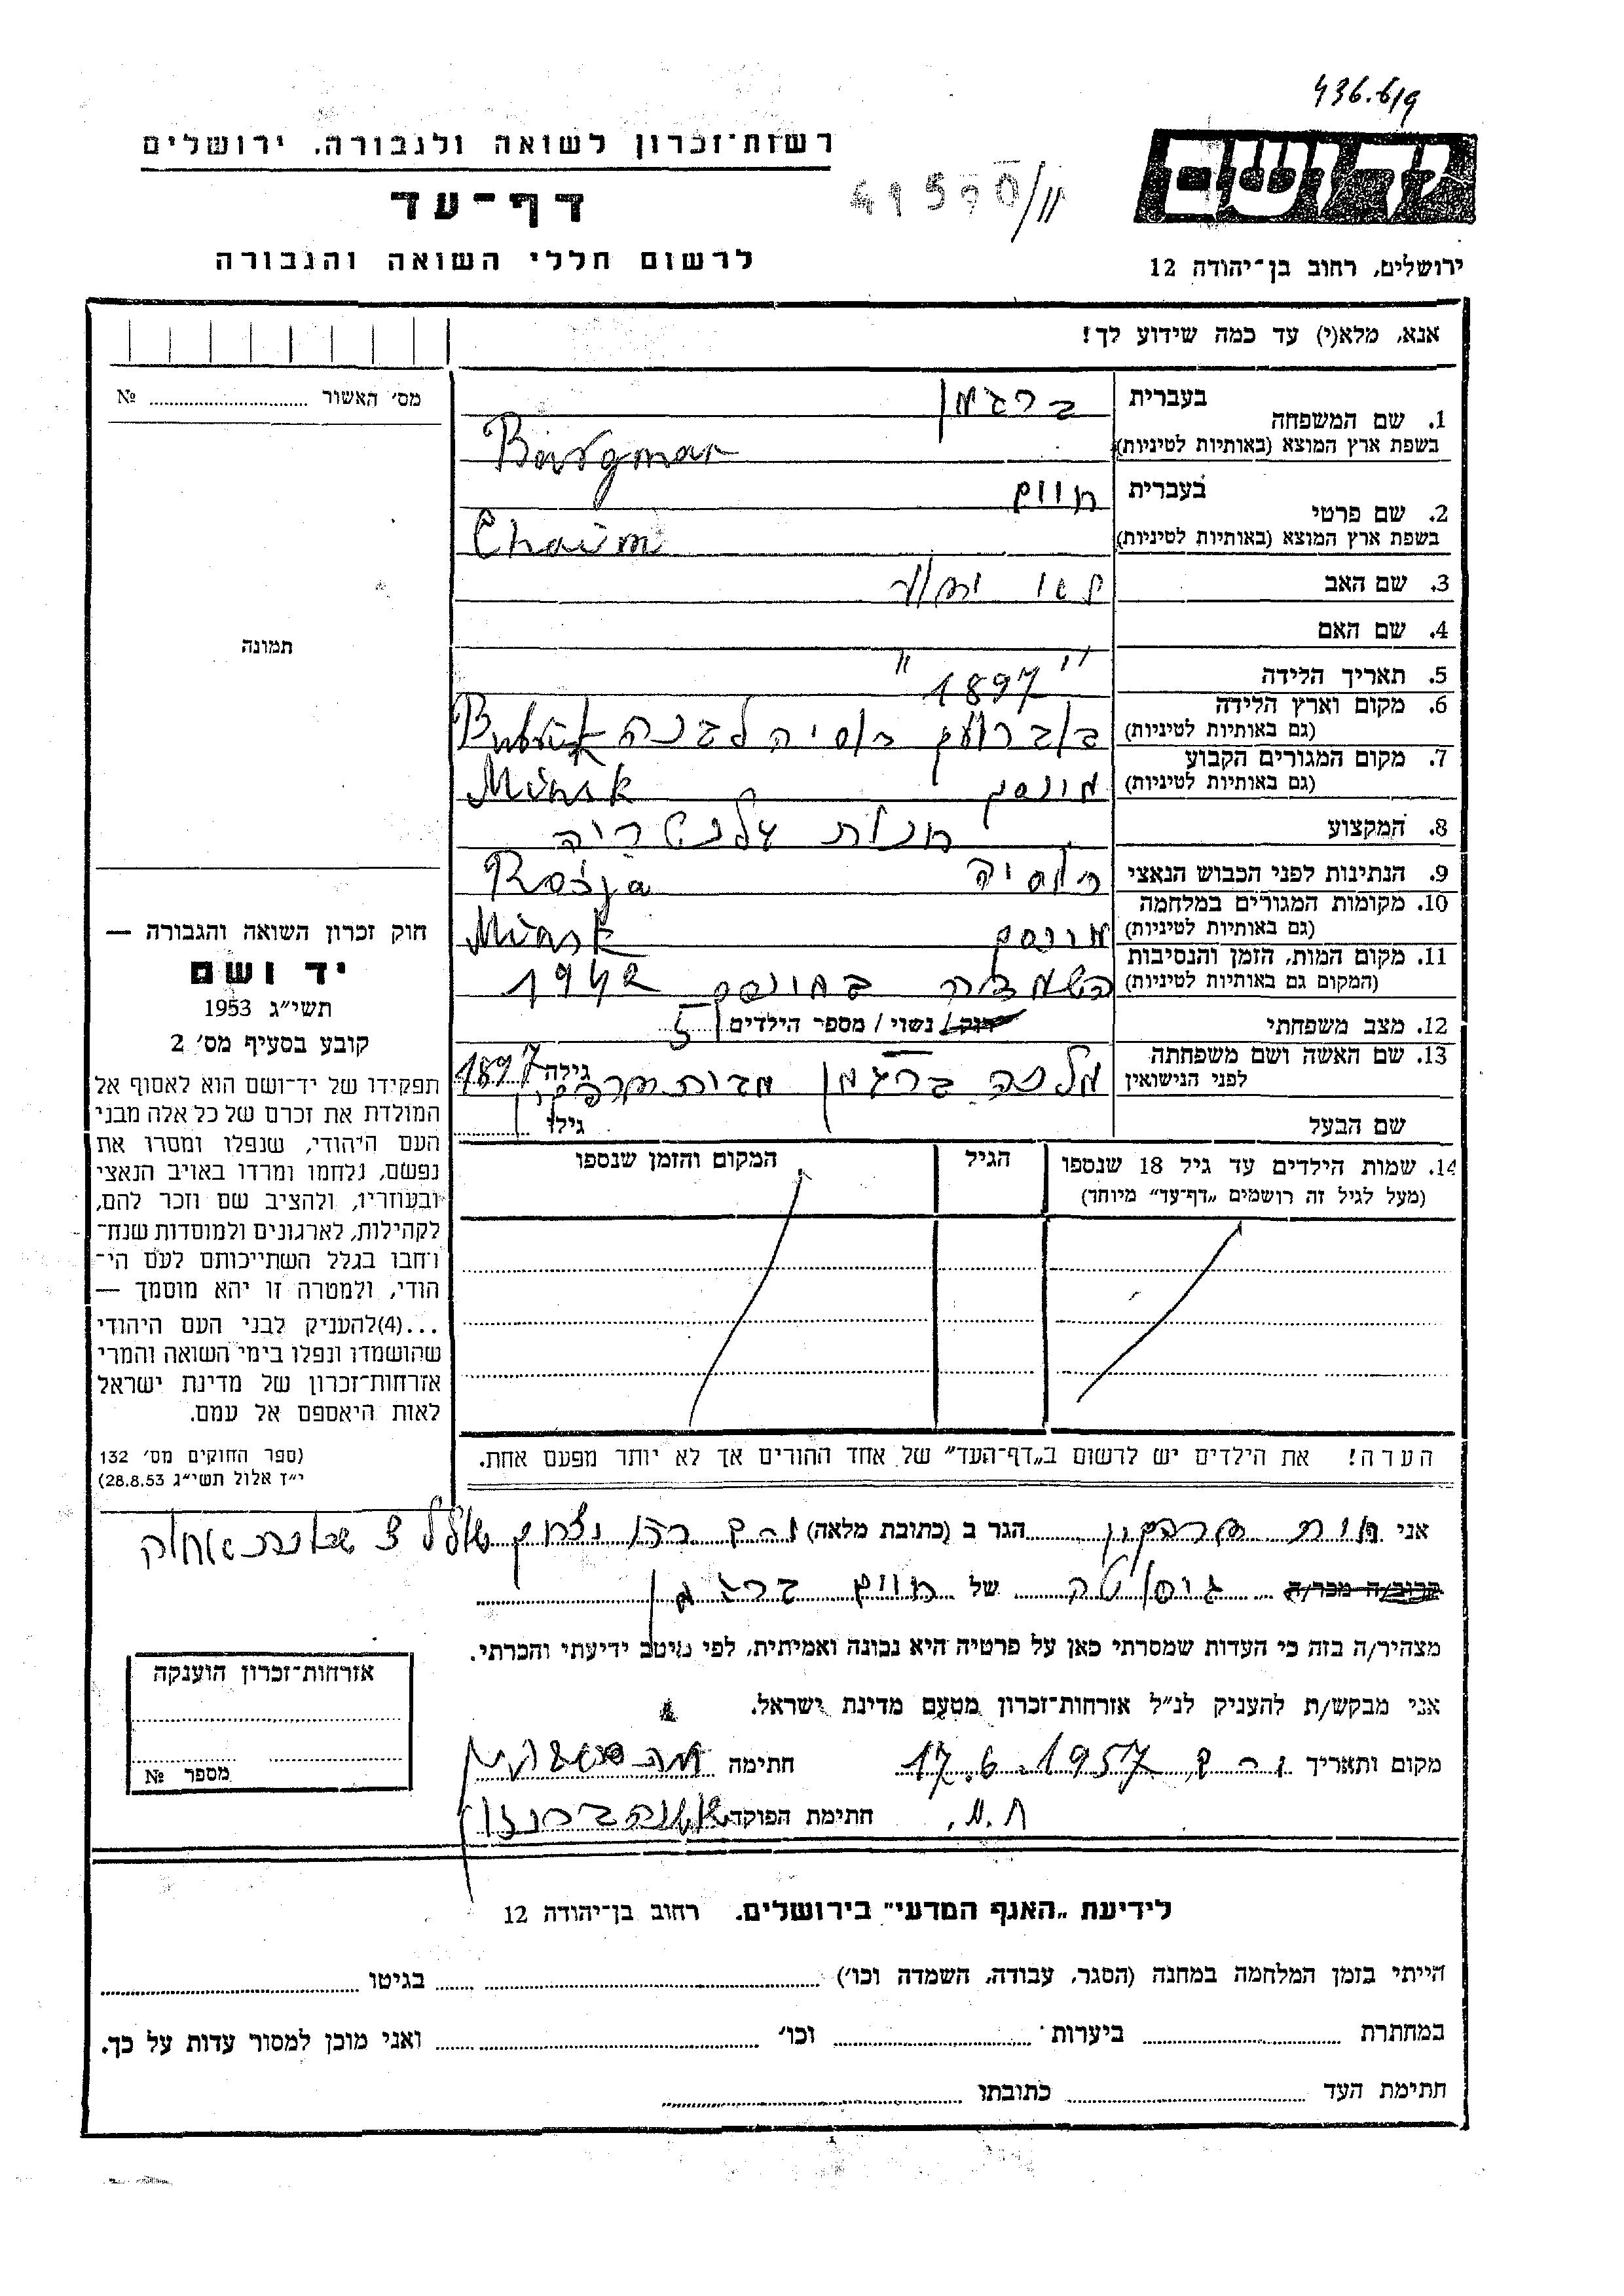 436.6/9
רשות־זכרון לשואה ולגבורה, ירושלים
דף־עד
לרשום חללי השואה והגבורה
ירושלים, רחוב בן־יהודה 12
אנא, מלא(י) עד כמה שידוע לך!
מס׳ האשור № 
בעברית ברגמן
1. שם המשפחה
בשפת ארץ המוצא (באותיות לטיניות) Bargman
בעברית חיים
2. שם פרטי
בשפת ארץ המוצא (באותיות לטיניות) Chaim
3. שם האב
4. שם האם
5. תאריך הלידה 1897
6. מקום וארץ הלידה
(גם באותיות לטיניות) רוסיה לבנה
7. מקום המגורים הקבוע
(גם באותיות לטיניות) מינסק Minsk
8. המקצוע חנות
9. הנתינות לפני הכבוש הנאצי רוסיה Rosja
10. מקומות המגורים במלחמה
(גם באותיות לטיניות) מינסק Minsk
11. מקום המות, הזמן והנסיבות
(המקום גם באותיות לטיניות) השמדה במינסק 1942
12. מצב משפחתי רוק/ נשוי / מספר הילדים 5
13. שם האשה ושם משפחתה
לפני הנישואין מלכה ברגמן מבית גילה 1897
שם הבעל גילו
14. שמות הילדים עד גיל 18 שנספו
(מעל לגיל זה רושמים „דף־עד״ מיוחד)
הגיל
המקום והזמן שנספו
הערה! את הילדים יש לרשום ב„דף־העד״ של אחד ההורים אך לא יותר מפעם אחת.
תמונה
חוק זכרון השואה והגבורה —
יד ושם
תשי״ג 1953
קובע בסעיף מס׳ 2
תפקידו של יד־ושם הוא לאסוף אל
המולדת את זכרם של כל אלה מבני
העם היהודי, שנפלו ומסרו את
נפשם, נלחמו ומרדו באויב הנאצי
ובעוזריו, ולהציב שם וזכר להם,
לקהילות, לארגונים ולמוסדות שנח־
רחבו בגלל השתייכותם לעם הי־
הודי, ולמטרה זו יהא מוסמך —
...(4)להעניק לבני העם היהודי
שהושמדו ונפלו בימי השואה והמרי
אזרחות־זכרון של מדינת ישראל
לאות היאספם אל עמם.
(ספר החוקים מס׳ 132
י״ז אלול תשי״ג 28.8.53)
אני הגר ב (כתובת מלאה)
קרוב/ה מכר/ה גיסתה של חיים ברגמן
מצהיר/ה בזה כי העדות שמסרתי כאן על פרטיה היא נכונה ואמיתית, לפי מיטב ידיעתי והכרתי.
אני מבקש/ת להעניק לנ״ל אזרחות־זכרון מטעם מדינת ישראל.
מקום ותאריך 17.6.1957 חתימה
חתימת הפוקד
אזרחות־זכרון הוענקה
מספר №
לידיעת „האגף המדעי״ בירושלים, רחוב בן־יהודה 12
הייתי בזמן המלחמה במחנה (הסגר, עבודה, השמדה וכו׳) בגיטו
במחתרת ביערות וכו׳ ואני מוכן למסור עדות על כך.
חתימת העד כתובתו